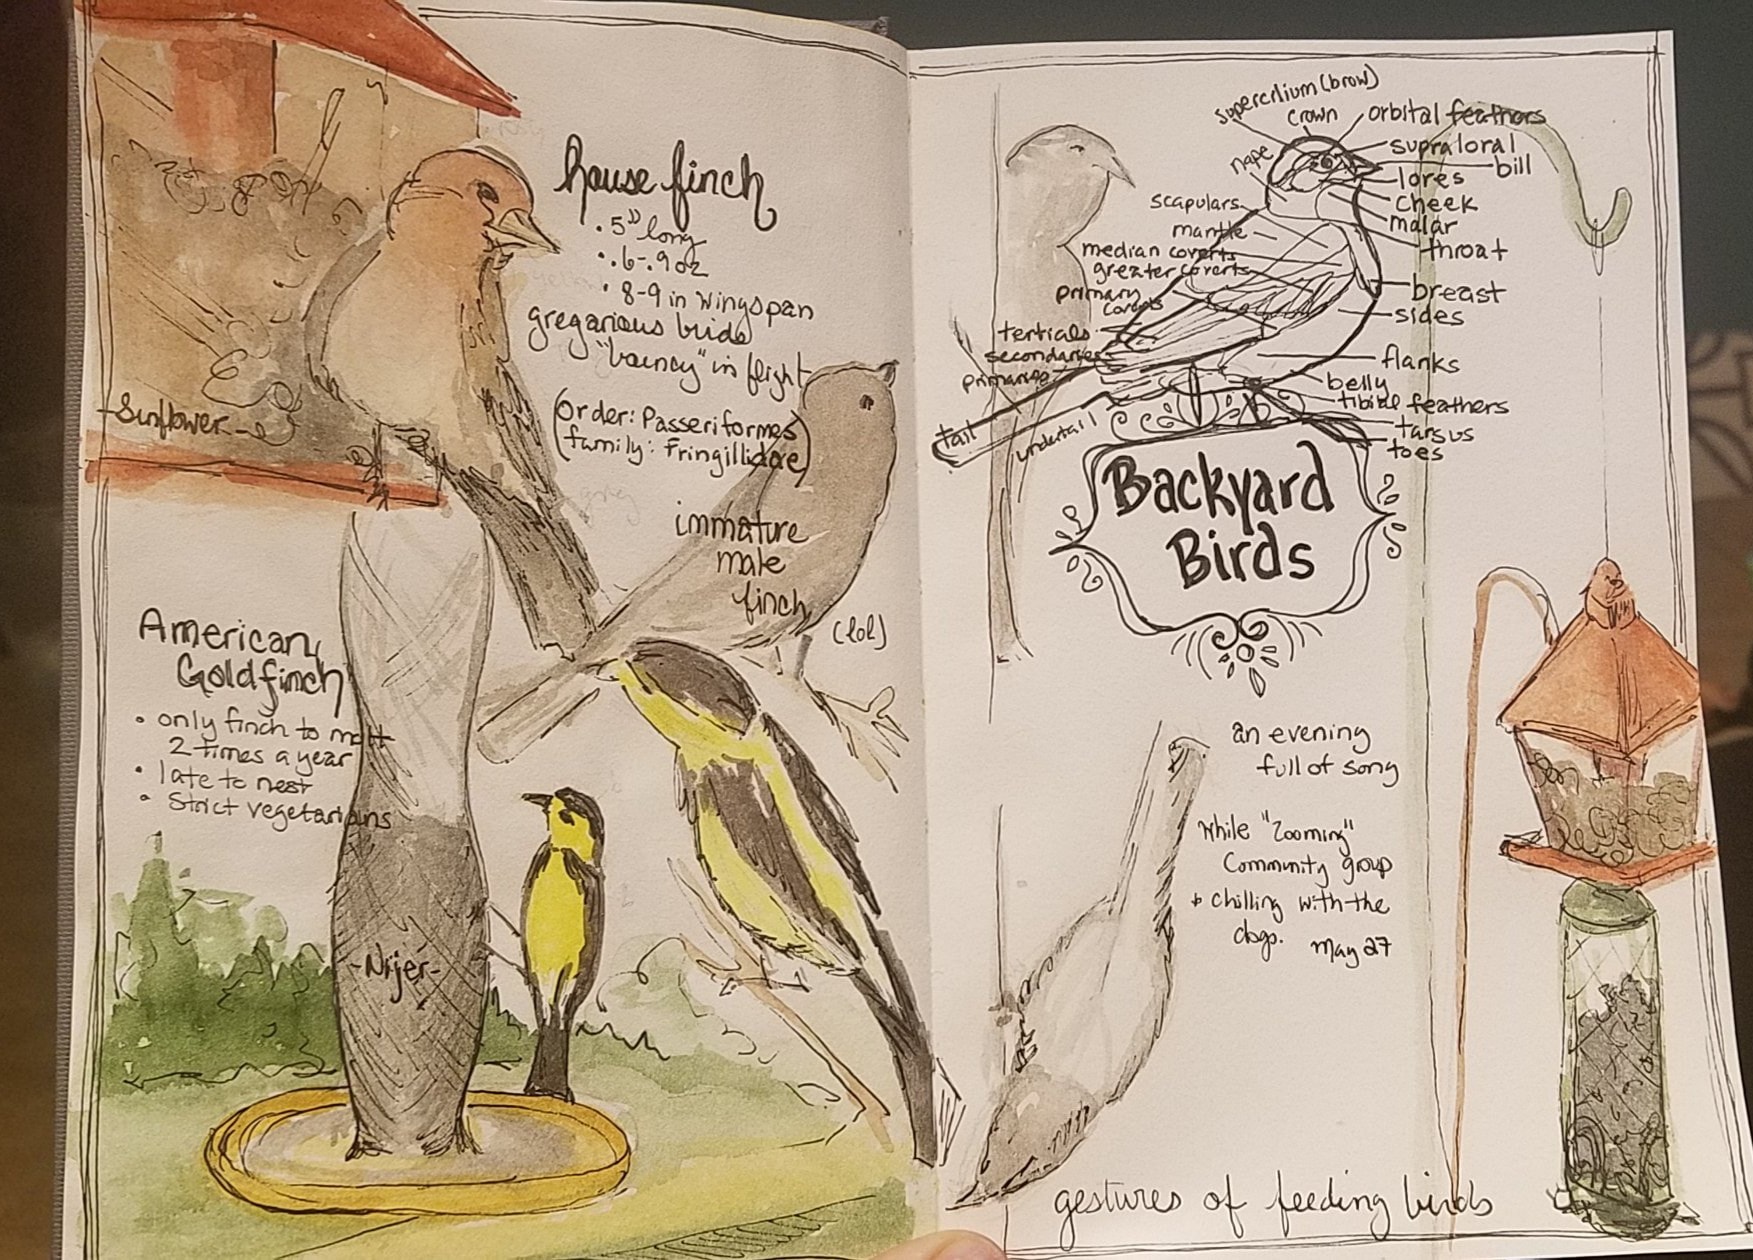 house finch
• 5" long
• .6-.9 oz
• 8-9 in wingspan
gregarious birds
"bouncy" in flight
(order: Passeriformes
family: Fringillidae)
-Sunflower-
immature
male
finch
(lol)
American
Goldfinch
• only finch to molt
2 times a year
• late to nest
• Strict vegetarians
-Nijer-
supercilium (brow)
crown
orbital feathers
nape
supraloral
bill
lores
cheek
malar
throat
scapulars
mantle
median coverts
greater coverts
primary
coverts
tertials
secondaries
primaries
tail
undertail
breast
sides
flanks
belly
tibial feathers
tarsus
toes
Backyard
Birds
an evening
full of song
While "Zooming"
Community group
+ chilling with the
dogs. May 27
gestures of feeding birds